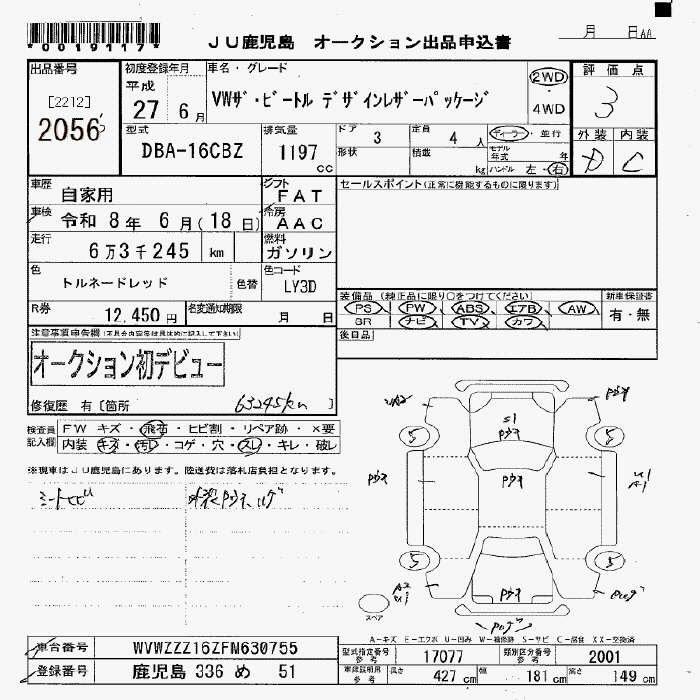 *0019117*
JU鹿児島 オークション出品申込書
月 日
出品番号
[2212]
2056
初度登録年月
平成
27 6月
車名・グレード
VWザ・ビートル デザインレザーパッケージ
2WD
4WD
評価点
3
型式
DBA-16CBZ
排気量
1197
cc
ドア
3
定員
4人
形状
積載
kg
ディーラー・並行
モデル年式 年
ハンドル 左・右
外装 内装
D C
車歴
自家用
シフト
FAT
車検
令和 8年 6月(18日)
冷房
AAC
走行
6万3千245 km
燃料
ガソリン
色
トルネードレッド
色替
色コード
LY3D
R券
12,450円
名変通知期限
月 日
セールスポイント(正常に機能するものに限ります)
装備品(純正品に限り○をつけてください)
PS PW ABS エアB AW
SR ナビ TV カワ
新車保証書
有・無
後日品
注意事項申告欄(不具合内容等は具体的に記入して下さい)
オークション初デビュー
63245km
修復歴 有〔箇所 〕
検査員記入欄
FW キズ・飛石・ヒビ割・リペア跡・×要
内装・キズ・汚レ・コゲ・穴・スレ・キレ・破レ
※現車はJU鹿児島にあります。陸送費は落札店負担となります。
S1
5
5
5
5
A2
スペア
A-キズ E-エクボ U-凹み W-補修跡 S-サビ C-腐食 XX-交換済
車台番号
WVWZZZ16ZFM630755
登録番号
鹿児島 336 め 51
型式指定番号
参考
17077
類別区分番号
参考
2001
車検証明用
参考
長さ 427cm 幅 181cm 高さ 149cm